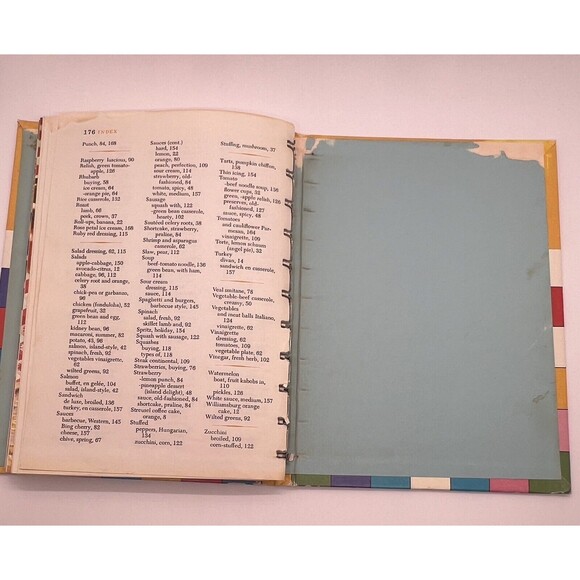 176 INDEX
Punch, 84, 168
Raspberry luscious, 90
Relish, green tomato-
apple, 126
Rhubarb
buying, 58
ice cream, 64
-orange pie, 64
Rice casserole, 132
Roast
lamb, 66
pork, crown, 37
Roll-ups, banana, 22
Rose petal ice cream, 168
Ruby red dressing, 115
Salad dressing, 62, 115
Salads
apple-cabbage, 150
avocado-citrus, 12
cabbage, 96, 112
celery root and orange,
38
chick-pea or garbanzo,
96
chicken (fonduloha), 32
grapefruit, 32
green bean and egg,
112
kidney bean, 96
macaroni, summer, 82
potato, 43, 96
salmon, island-style, 42
spinach, fresh, 92
vegetables vinaigrette,
62
wilted greens, 92
Salmon
buffet, en gelée, 104
salad, island-style, 42
Sandwich
de luxe, broiled, 136
turkey, en casserole, 157
Sauces
barbecue, Western, 145
Bing cherry, 82
cheese, 157
chive, spring, 67
Sauces (cont.)
hard, 154
lemon, 22
orange, 80
peach, perfection, 109
sour cream, 114
strawberry, old-
fashioned, 84
tomato, spicy, 48
white, medium, 157
Sausage
squash with, 122
-green bean casserole,
hearty, 102
Sautéed celery roots, 38
Shortcake, strawberry,
praline, 84
Shrimp and asparagus
casserole, 62
Slaw, pear, 112
Soup
beef-tomato noodle, 136
green bean, with ham,
114
Sour cream
dressing, 115
sauce, 114
Spaghetti and burgers,
barbecue style, 145
Spinach
salad, fresh, 92
skillet lamb and, 92
Spritz, holiday, 154
Squash with sausage, 122
Squashes
buying, 118
types of, 118
Steak continental, 109
Strawberries, buying, 76
Strawberry
-lemon punch, 84
-pineapple dessert
(island delight), 48
sauce, old-fashioned, 84
shortcake, praline, 84
Streusel coffee cake,
orange, 8
Stuffed
peppers, Hungarian,
134
zucchini, corn, 122
Stuffing, mushroom, 37
Tarts, pumpkin chiffon,
158
Thin icing, 154
Tomato
-beef noodle soup, 136
flower cups, 32
green, -apple relish, 126
preserves, old-
fashioned, 127
sauce, spicy, 48
Tomatoes
and cauliflower Par-
mesan, 164
vinaigrette, 109
Torte, lemon schaum
(angel pie), 32
Turkey
divan, 14
sandwich en casserole,
157
Veal unitane, 78
Vegetable-beef casserole,
creamy, 50
Vegetables
and meat balls Italiano,
124
vinaigrette, 62
Vinaigrette
dressing, 62
tomatoes, 109
vegetable plate, 62
Vinegar, fresh herb, 102
Watermelon
boat, fruit kabobs in,
110
pickles, 126
White sauce, medium, 157
Williamsburg orange
cake, 11
Wilted greens, 92
Zucchini
broiled, 109
corn-stuffed, 122